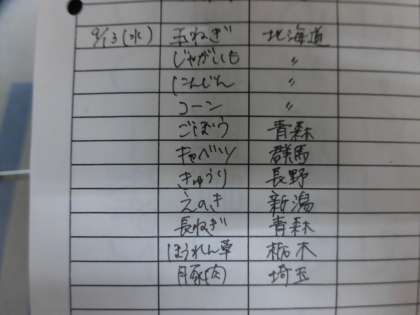 9/13(水) 玉ねぎ 北海道
じゃがいも 〃
にんじん 〃
コーン 〃
ごぼう 青森
キャベツ 群馬
きゅうり 長野
えのき 新潟
長ねぎ 青森
ほうれん草 栃木
豚肉 埼玉